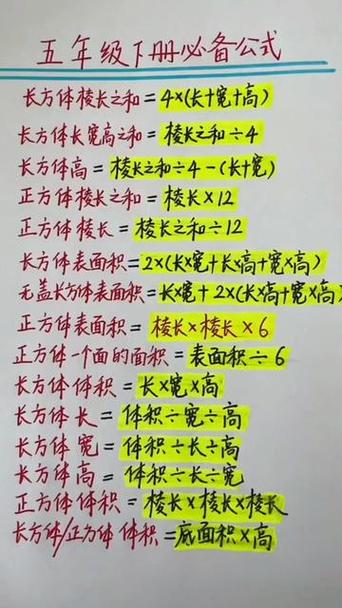 五年级下册必备公式
长方体棱长之和=4×(长+宽+高)
长方体长宽高之和=棱长之和÷4
长方体高=棱长之和÷4-(长+宽)
正方体棱长之和=棱长×12
正方体棱长=棱长之和÷12
长方体表面积=2×(长×宽+长×高+宽×高)
无盖长方体表面积=长×宽+2×(长×高+宽×高)
正方体表面积=棱长×棱长×6
正方体一个面的面积=表面积÷6
长方体体积=长×宽×高
长方体长=体积÷宽÷高
长方体宽=体积÷长÷高
长方体高=体积÷长÷宽
正方体体积=棱长×棱长×棱长
长方体/正方体体积=底面积×高